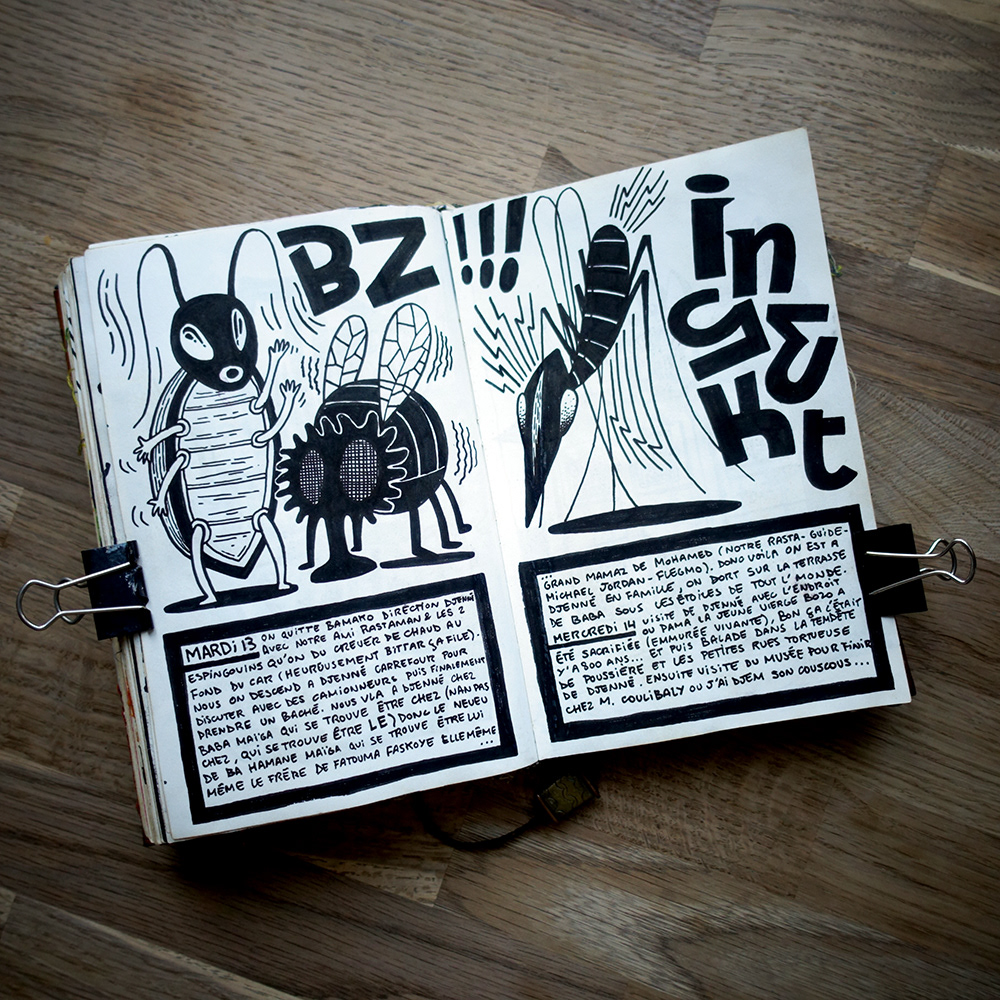 BZ!!!
MARDI 13 ON QUITTE BAMAKO DIRECTION DJENNÉ
AVEC NOTRE AMI RASTAMAN & LES 2
ESPINGOUINS QU'ON DU CREUER DE CHAUD AU
FOND DU CAR (HEUREUSEMENT BITTAR ÇA FILE).
NOUS ON DESCEND A DJENNÉ CARREFOUR POUR
DISCUTER AVEC DES CAMIONNEURS PUIS FINALEMENT
PRENDRE UN BACHÉ. NOUS VLA À DJENNÉ CHEZ
BABA MAÏGA QUI SE TROUVE ÊTRE CHEZ (NAN PAS
CHEZ, QUI SE TROUVE ÊTRE LE) DONC LE NEUEU
DE BA HAMANE MAÏGA QUI SE TROUVE ÊTRE LUI
MÊME LE FRÈRE DE FATOUMA FASKOYE ELLE MÊME
...
in
SƐ
Kt
...
GRAND MAMAZ DE MOHAMED (NOTRE RASTA-GUIDE-
MICHAEL JORDAN-FLEGMO). DONC VOILA ON EST A
DJENNÉ EN FAMILLE, ON DORT SUR LA TERRASSE
DE BABA SOUS LES ÉTOILES DE TOUT L'MONDE.
MERCREDI 14 VISITE DE DJENNÉ AVEC L'ENDROIT
OU PAMA LA JEUNE VIERGE BOZO A
ÉTÉ SACRIFIÉE (EMMURÉE VIVANTE), BON ÇA C'ÉTAIT
Y'A 800 ANS... ET PUIS BALADE DANS LA TEMPÊTE
DE POUSSIÈRE ET LES PETITES RUES TORTUEUSE
DE DJENNÉ. ENSUITE VISITE DU MUSÉE POUR FINIR
CHEZ M. COULIBALY OU J'AI DJEM SON COUSCOUS...